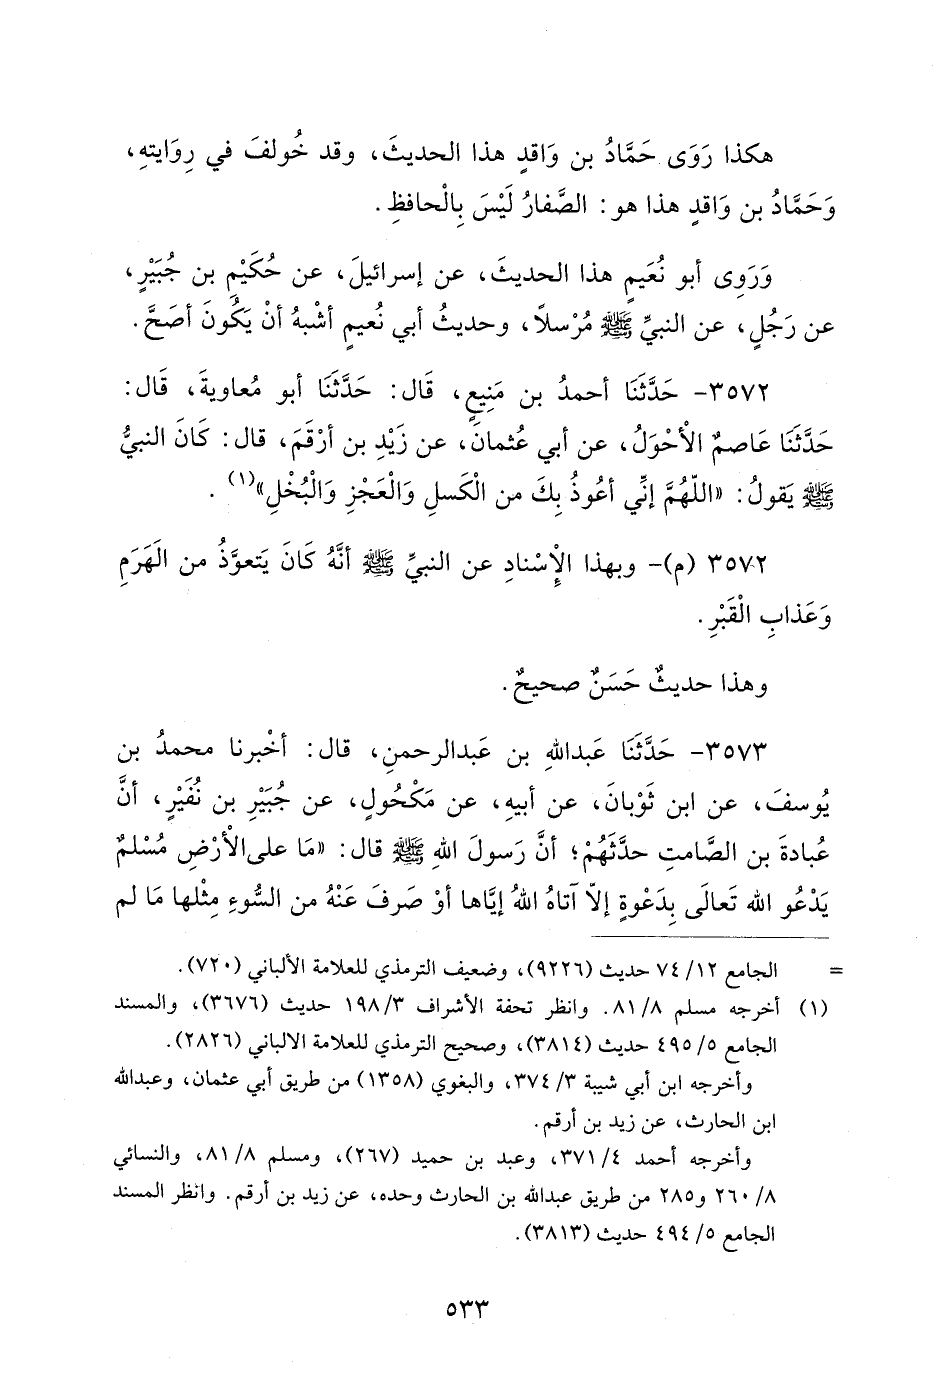 هكذا رَوَى حَمَّادُ بن وَاقدٍ هذا الحديثَ، وقد خُولفَ في رِوَايتهِ،
وَحَمَّادُ بن وَاقدٍ هذا هو: الصَّفارُ لَيْسَ بِالْحافظِ.
وَرَوِى أبو نُعَيمٍ هذا الحديثَ، عن إسرائيلَ، عن حُكَيْمِ بن جُبَيْرٍ،
عن رَجُلٍ، عن النبيِّ ﷺ مُرْسلاً، وحديثُ أبي نُعيمٍ أشْبهُ أنْ يَكُونَ أصَحَّ.
٣٥٧٢- حَدَّثَنَا أحمدُ بن مَنِيعٍ، قَال: حَدَّثَنَا أبو مُعاويةَ، قَال:
حَدَّثَنَا عَاصمٌ الأحْوَلُ، عن أبي عُثمانَ، عن زَيْدِ بن أرْقَمَ، قال: كَانَ النبيُّ
ﷺ يَقولُ: «اللّهُمَّ إنِّي أعُوذُ بِكَ من الْكَسلِ وَالْعَجْزِ وَالْبُخْلِ»(١) .
٣٥٧٢ (م)- وبهذا الإسْنادِ عن النبيِّ ﷺ أنَّهُ كَانَ يَتعوَّذُ من الْهَرَمِ
وَعَذابِ الْقَبْرِ.
وهذا حديثٌ حَسَنٌ صحيحٌ.
٣٥٧٣- حَدَّثَنَا عَبداللهِ بن عَبدالرحمنِ، قال: أخْبرنا محمدُ بن
يُوسفَ، عن ابن ثَوْبانَ، عن أبيهِ، عن مَكْحُولٍ، عن جُبَيْرِ بن نُفَيْرٍ، أنَّ
عُبادةَ بن الصَّامتِ حدَّثَهُمْ؛ أنَّ رَسولَ اللهِ ﷺ قال: «مَا على الأرْضِ مُسْلمٌ
يَدْعُو الله تَعالَى بِدَعْوةٍ إلاّ آتاهُ اللهُ إيَّاها أوْ صَرفَ عَنْهُ من السُّوءِ مِثْلها مَا لم
= الجامع ١٢/ ٧٤ حديث (٩٢٢٦)، وضعيف الترمذي للعلامة الألباني (٧٢٠).
(١) أخرجه مسلم ٨/ ٨١. وانظر تحفة الأشراف ٣/ ١٩٨ حديث (٣٦٧٦)، والمسند
الجامع ٥/ ٤٩٥ حديث (٣٨١٤)، وصحيح الترمذي للعلامة الالباني (٢٨٢٦).
وأخرجه ابن أبي شيبة ٣/ ٣٧٤، والبغوي (١٣٥٨) من طريق أبي عثمان، وعبدالله
ابن الحارث، عن زيد بن أرقم.
وأخرجه أحمد ٤/ ٣٧١، وعبد بن حميد (٢٦٧)، ومسلم ٨/ ٨١، والنسائي
٨/ ٢٦٠ و٢٨٥ من طريق عبدالله بن الحارث وحده، عن زيد بن أرقم. وانظر المسند
الجامع ٥/ ٤٩٤ حديث (٣٨١٣).
٥٣٣